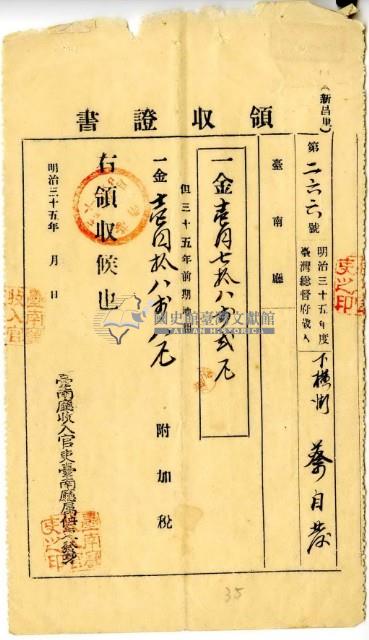 領收證書
(新昌里)
第二六六號
明治三十五年度
臺灣總督府歲入
蔡自
臺南廳
一金壹円七拾八錢貳厘
但三十五年前期
一金拾八錢八厘 附加稅
右領收候也
明治三十五年 月 日
臺南廳收入官吏臺南廳屬
國史館臺灣文獻館
TAIWAN HISTORICA
35